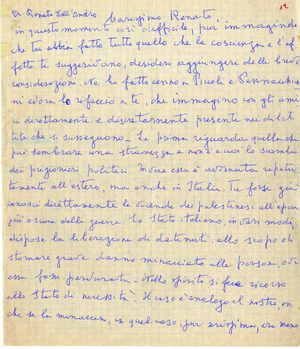 On. Renato Dell'Andro
Carissimo Renato,
in questo momento così difficile, pur immaginando
che tu abbia fatto tutto quello che la coscienza e l'af
fetto ti suggerivano, desidero aggiungere delle brevi
considerazioni. Ne ho fatto cenno a Piccoli e Pennacchini
ed ora lo rifaccio a te, che immagino con gli ami
ci direttamente e discretamente presente nei dibat
titi che si susseguono. La prima riguarda quella che
può sembrare una stranezza e non è e cioè lo scambio
dei prigionieri politici. Invece essa è avvenuta ripetu
tamente all'estero, ma anche in Italia. Tu forse già
conosci direttamente le vicende dei palestinesi all'epoca
più oscura della guerra. Lo Stato italiano, in vari modi,
dispose la liberazione di detenuti, allo scopo di
stornare grave danno minacciato alle persone, ove
essa fosse perdurata. Nello spirito si fece ricorso
allo stato di necessità. Il caso è analogo al nostro, an
che se la minaccia, in quel caso, pur serissima, era meno